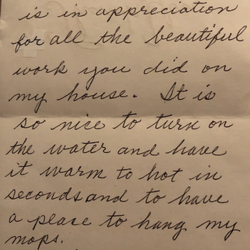 is in appreciation
for all the beautiful
work you did on
my house. It is
so nice to turn on
the water and have
it warm to hot in
seconds and to have
a place to hang my
mops.